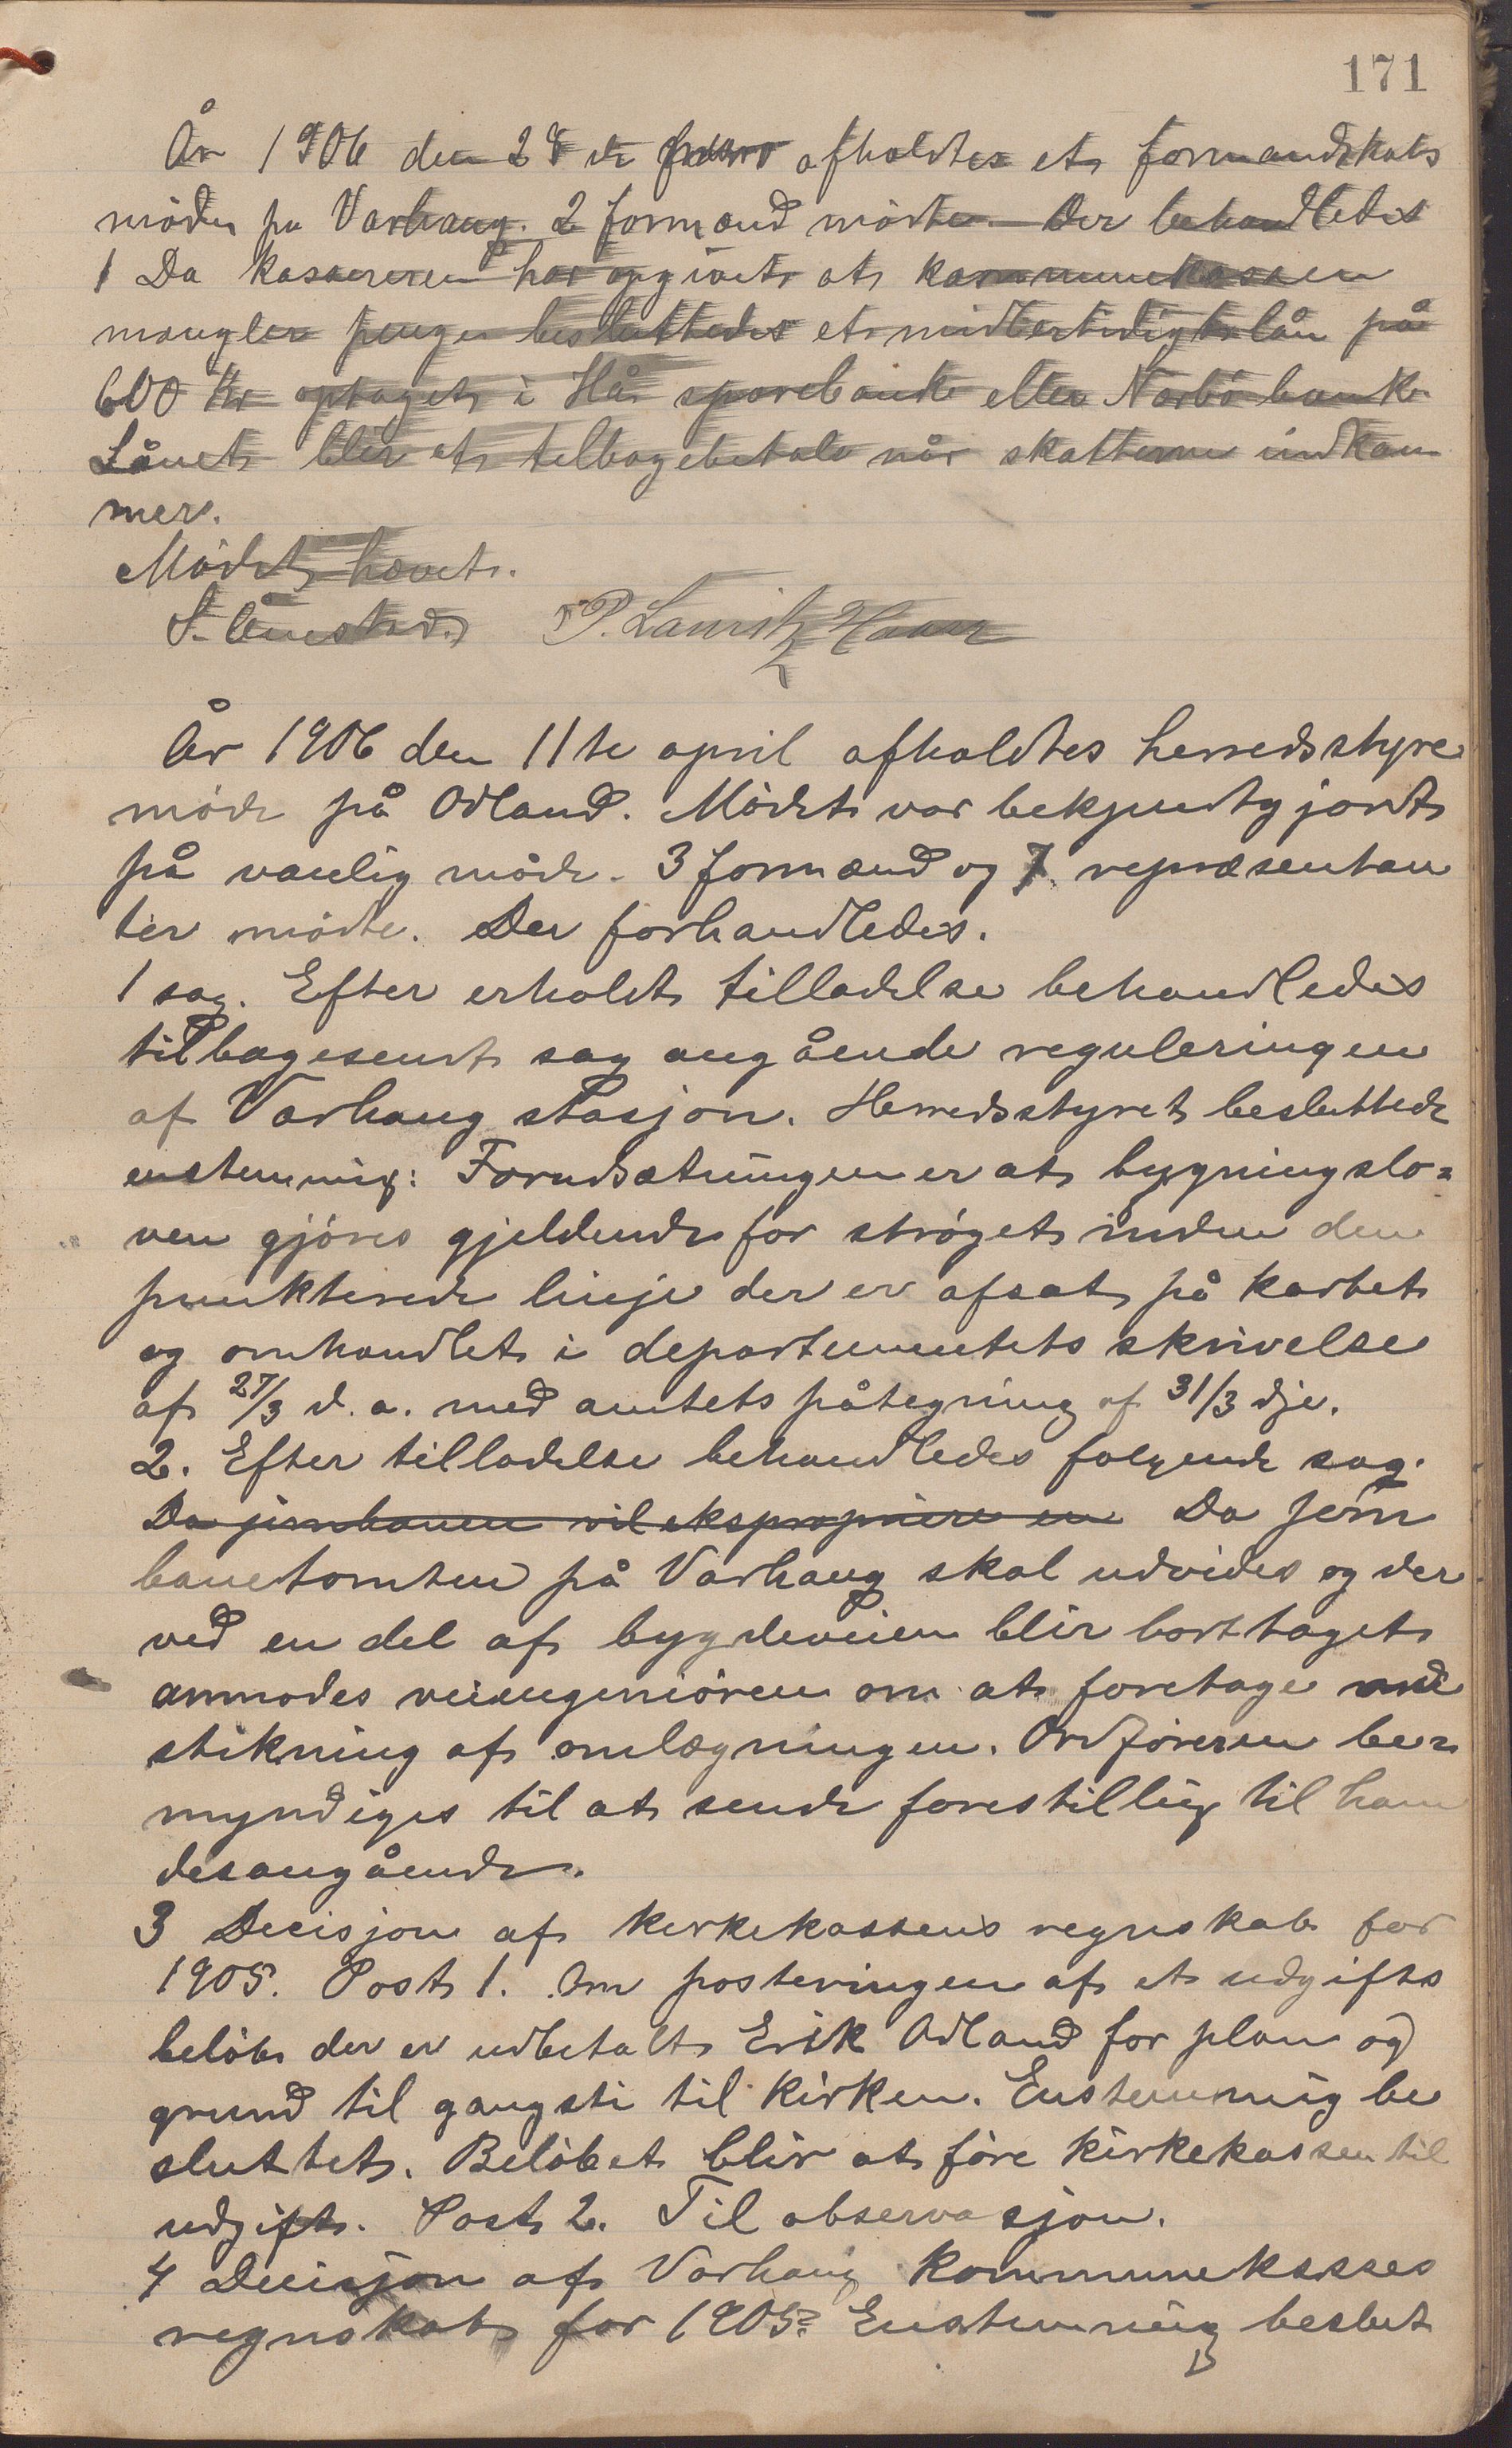 171
År 1906 den 28 de afholdtes et formandskabs
møde på Varhaug. 2 formænd mødte. Der behandledes
1 Da kassereren har opgivet at kommunekassen
mangler penge besluttedes et midlertidigt lån på
600 Kr optaget i Hå sparebank eller Nærbø bank.
Lånet blir at tilbagebetale når skatterne indkom
mer.
Mødet hævet.
P. Lauritz
År 1906 den 11te april afholdtes herredsstyre
møde på Odland. Mødet var bekjendtgjort
på vanlig måde. 3 formænd og 7 repræsentan
ter mødte. Der forhandledes.
1 sag. Efter erholdt tilladelse behandledes
tilbagesendt sag angående reguleringen
af Varhaug stasjon. Herredsstyret besluttede
enstemmig: Forudsætningen er at bygningslo=
ven gjøres gjeldende for strøget inden den
punkterede linje der er afsat på kartet
og omhandlet i departementets skrivelse
af 27/3 d. a. med amtets påtegning af 31/3 dje.
2. Efter tilladelse behandledes følgende sag.
Da jernbanen vil ekspropriere en Da jern
banetomten på Varhaug skal udvides og der
ved en del af bygdeveien blir borttaget
anmodes veiingeniøren om at foretage ud
stikning af omlægningen. Ordføreren be=
myndiges til at sende forestilling til ham
desangående.
3 Decisjon af kirkekassens regnskab for
1905. Post 1. Om posteringen af et udgifts
beløb der er udbetalt Erik Odland for plan og
grund til gangsti til kirken. Enstemmig be
sluttet. Beløbet blir at føre kirkekassen til
udgift. Post 2. Til observasjon.
4 Decisjon af Varhaug kommunekasses
regnskab for 1905. Enstemmig beslut